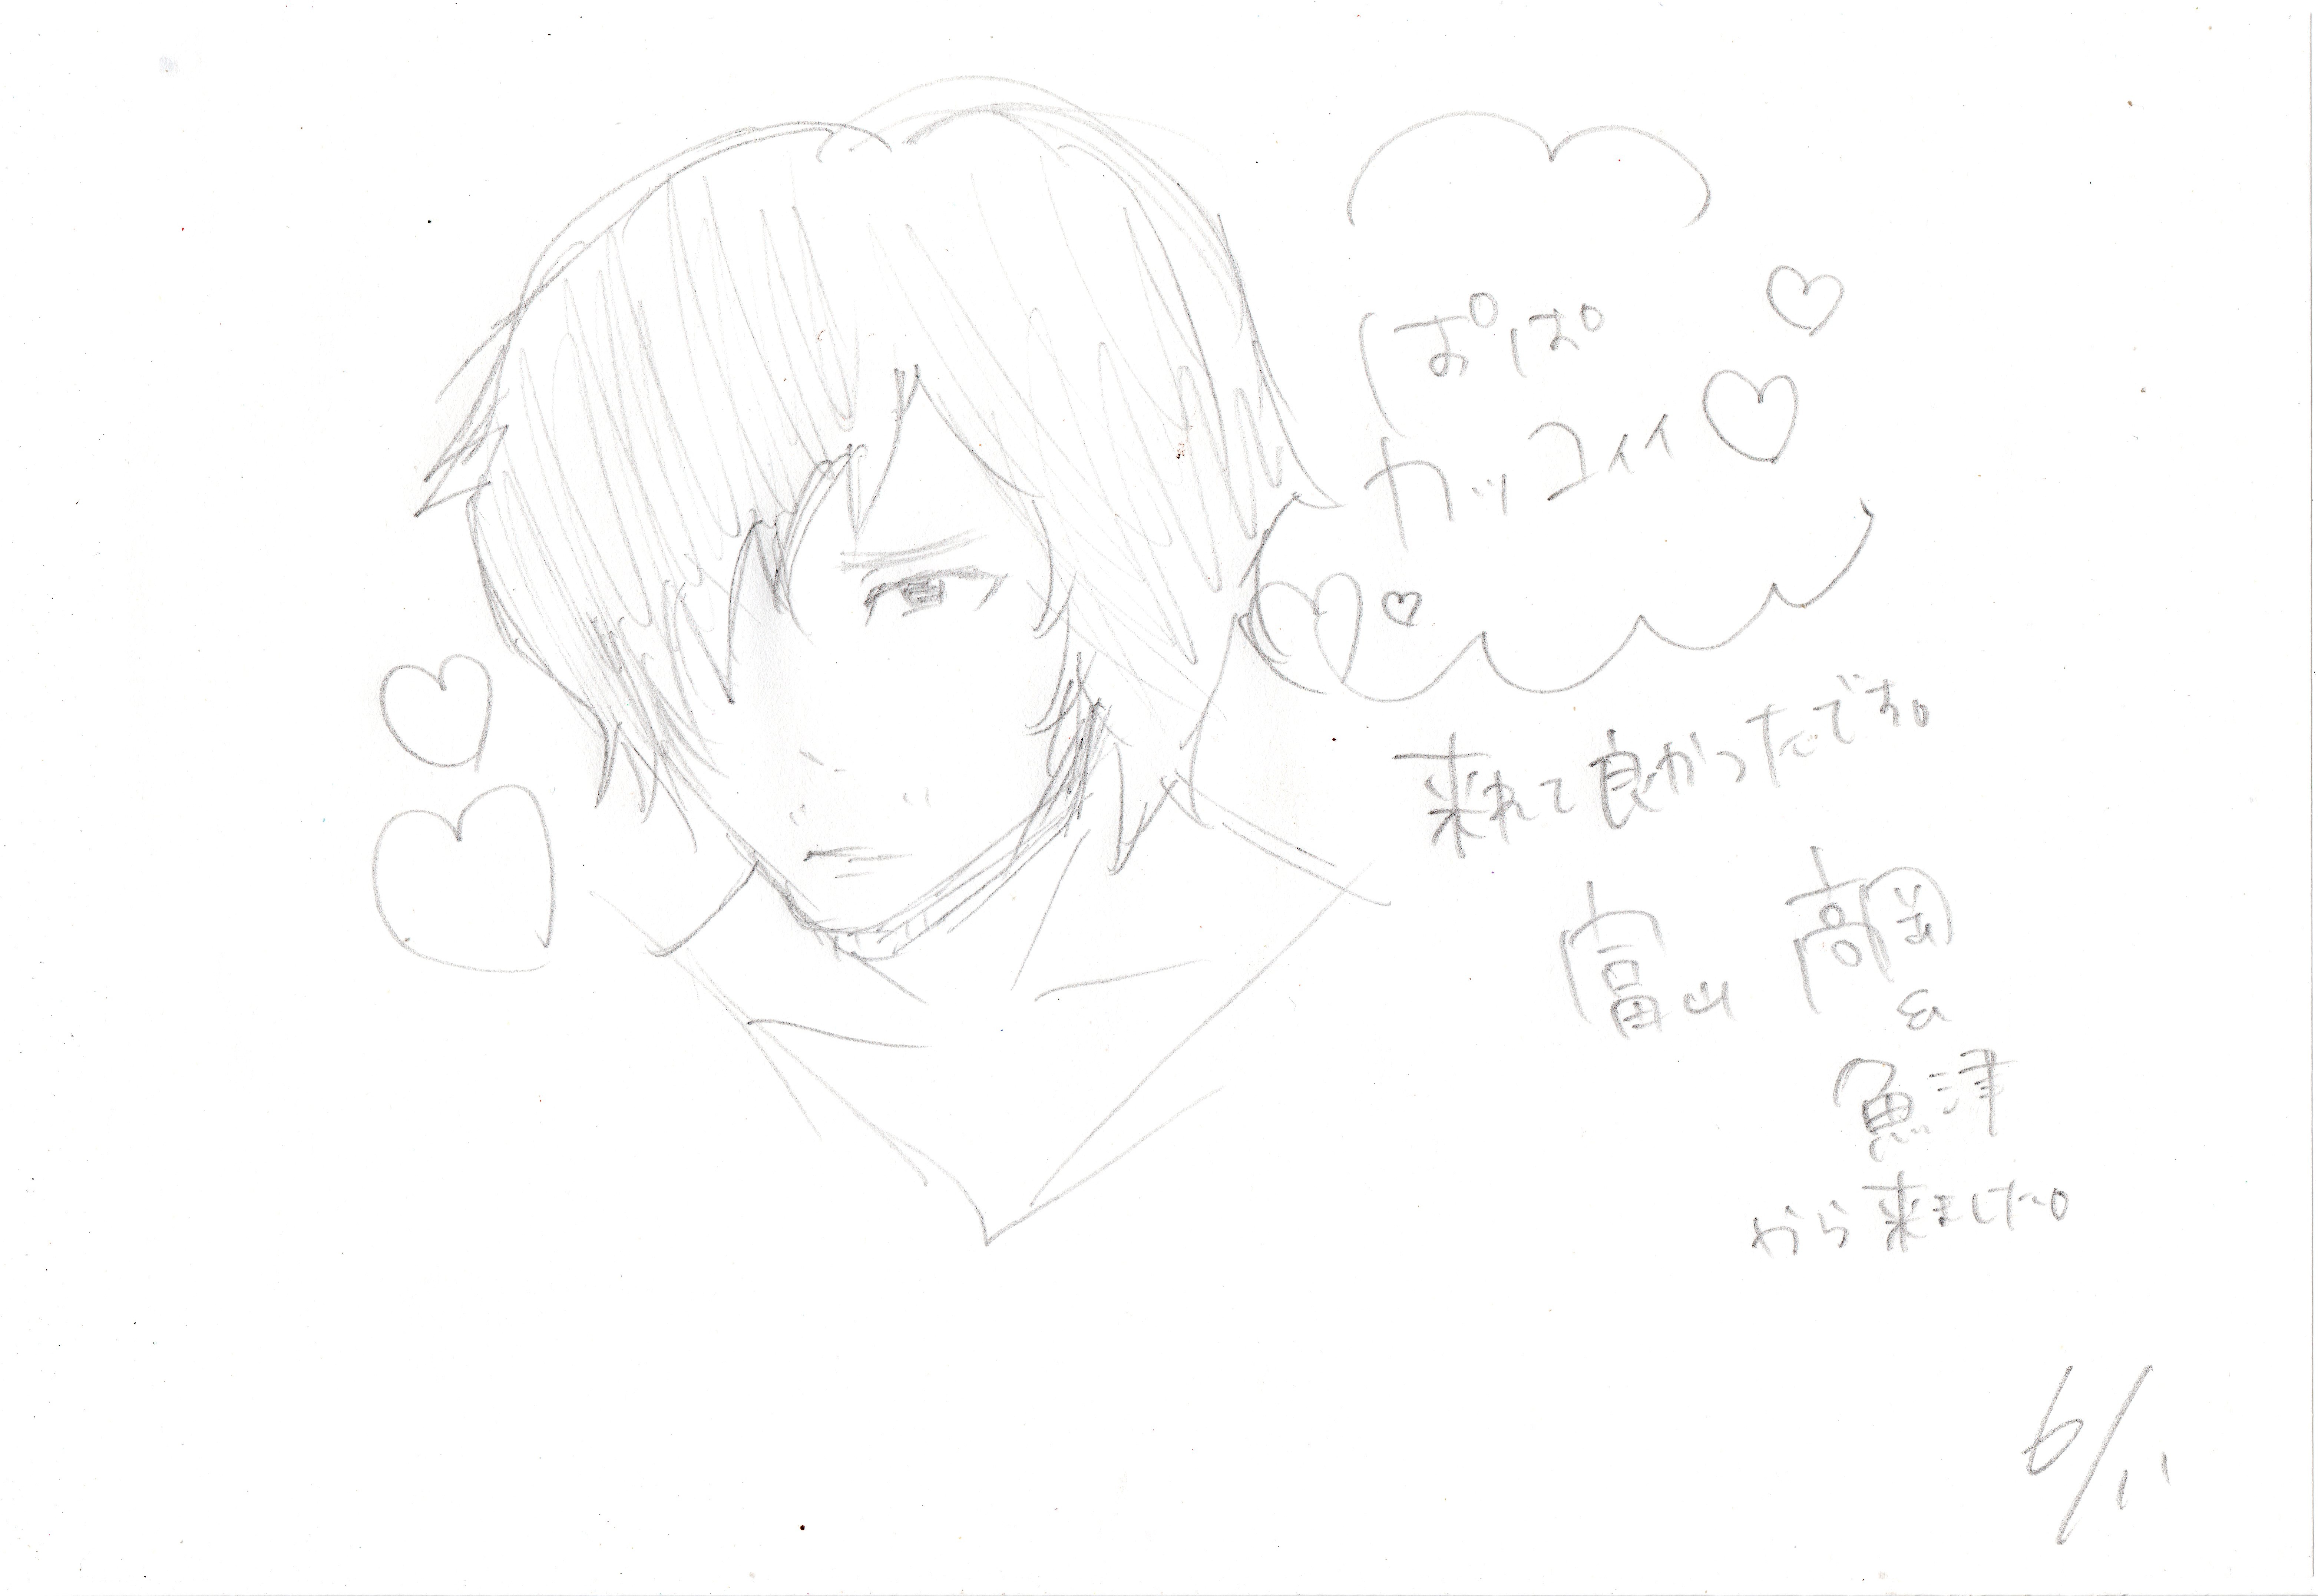 ぽぽ
カッコイイ
来れて良かったです。
富山 高岡
&
魚津
から来ました。
6/11